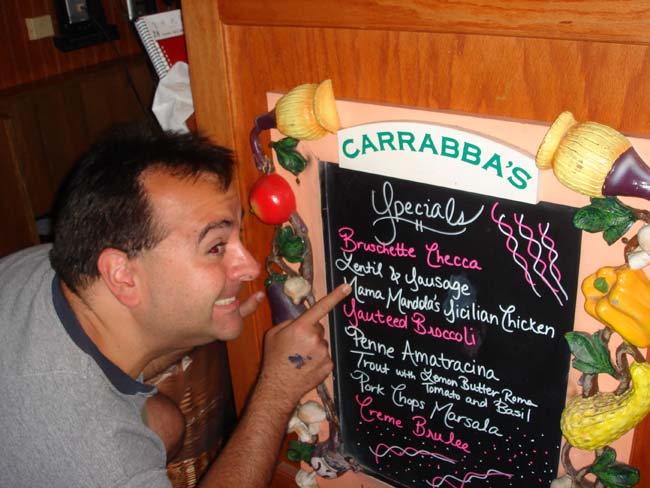 CARRABBA'S
Specials
Bruschette Checca
Lentil & Sausage
Mama Mandola's Sicilian Chicken
Sauteed Broccoli
Penne Amatracina
Trout with Lemon Butter, Roma
Tomato and Basil
Pork Chops Marsala
Creme Brulee